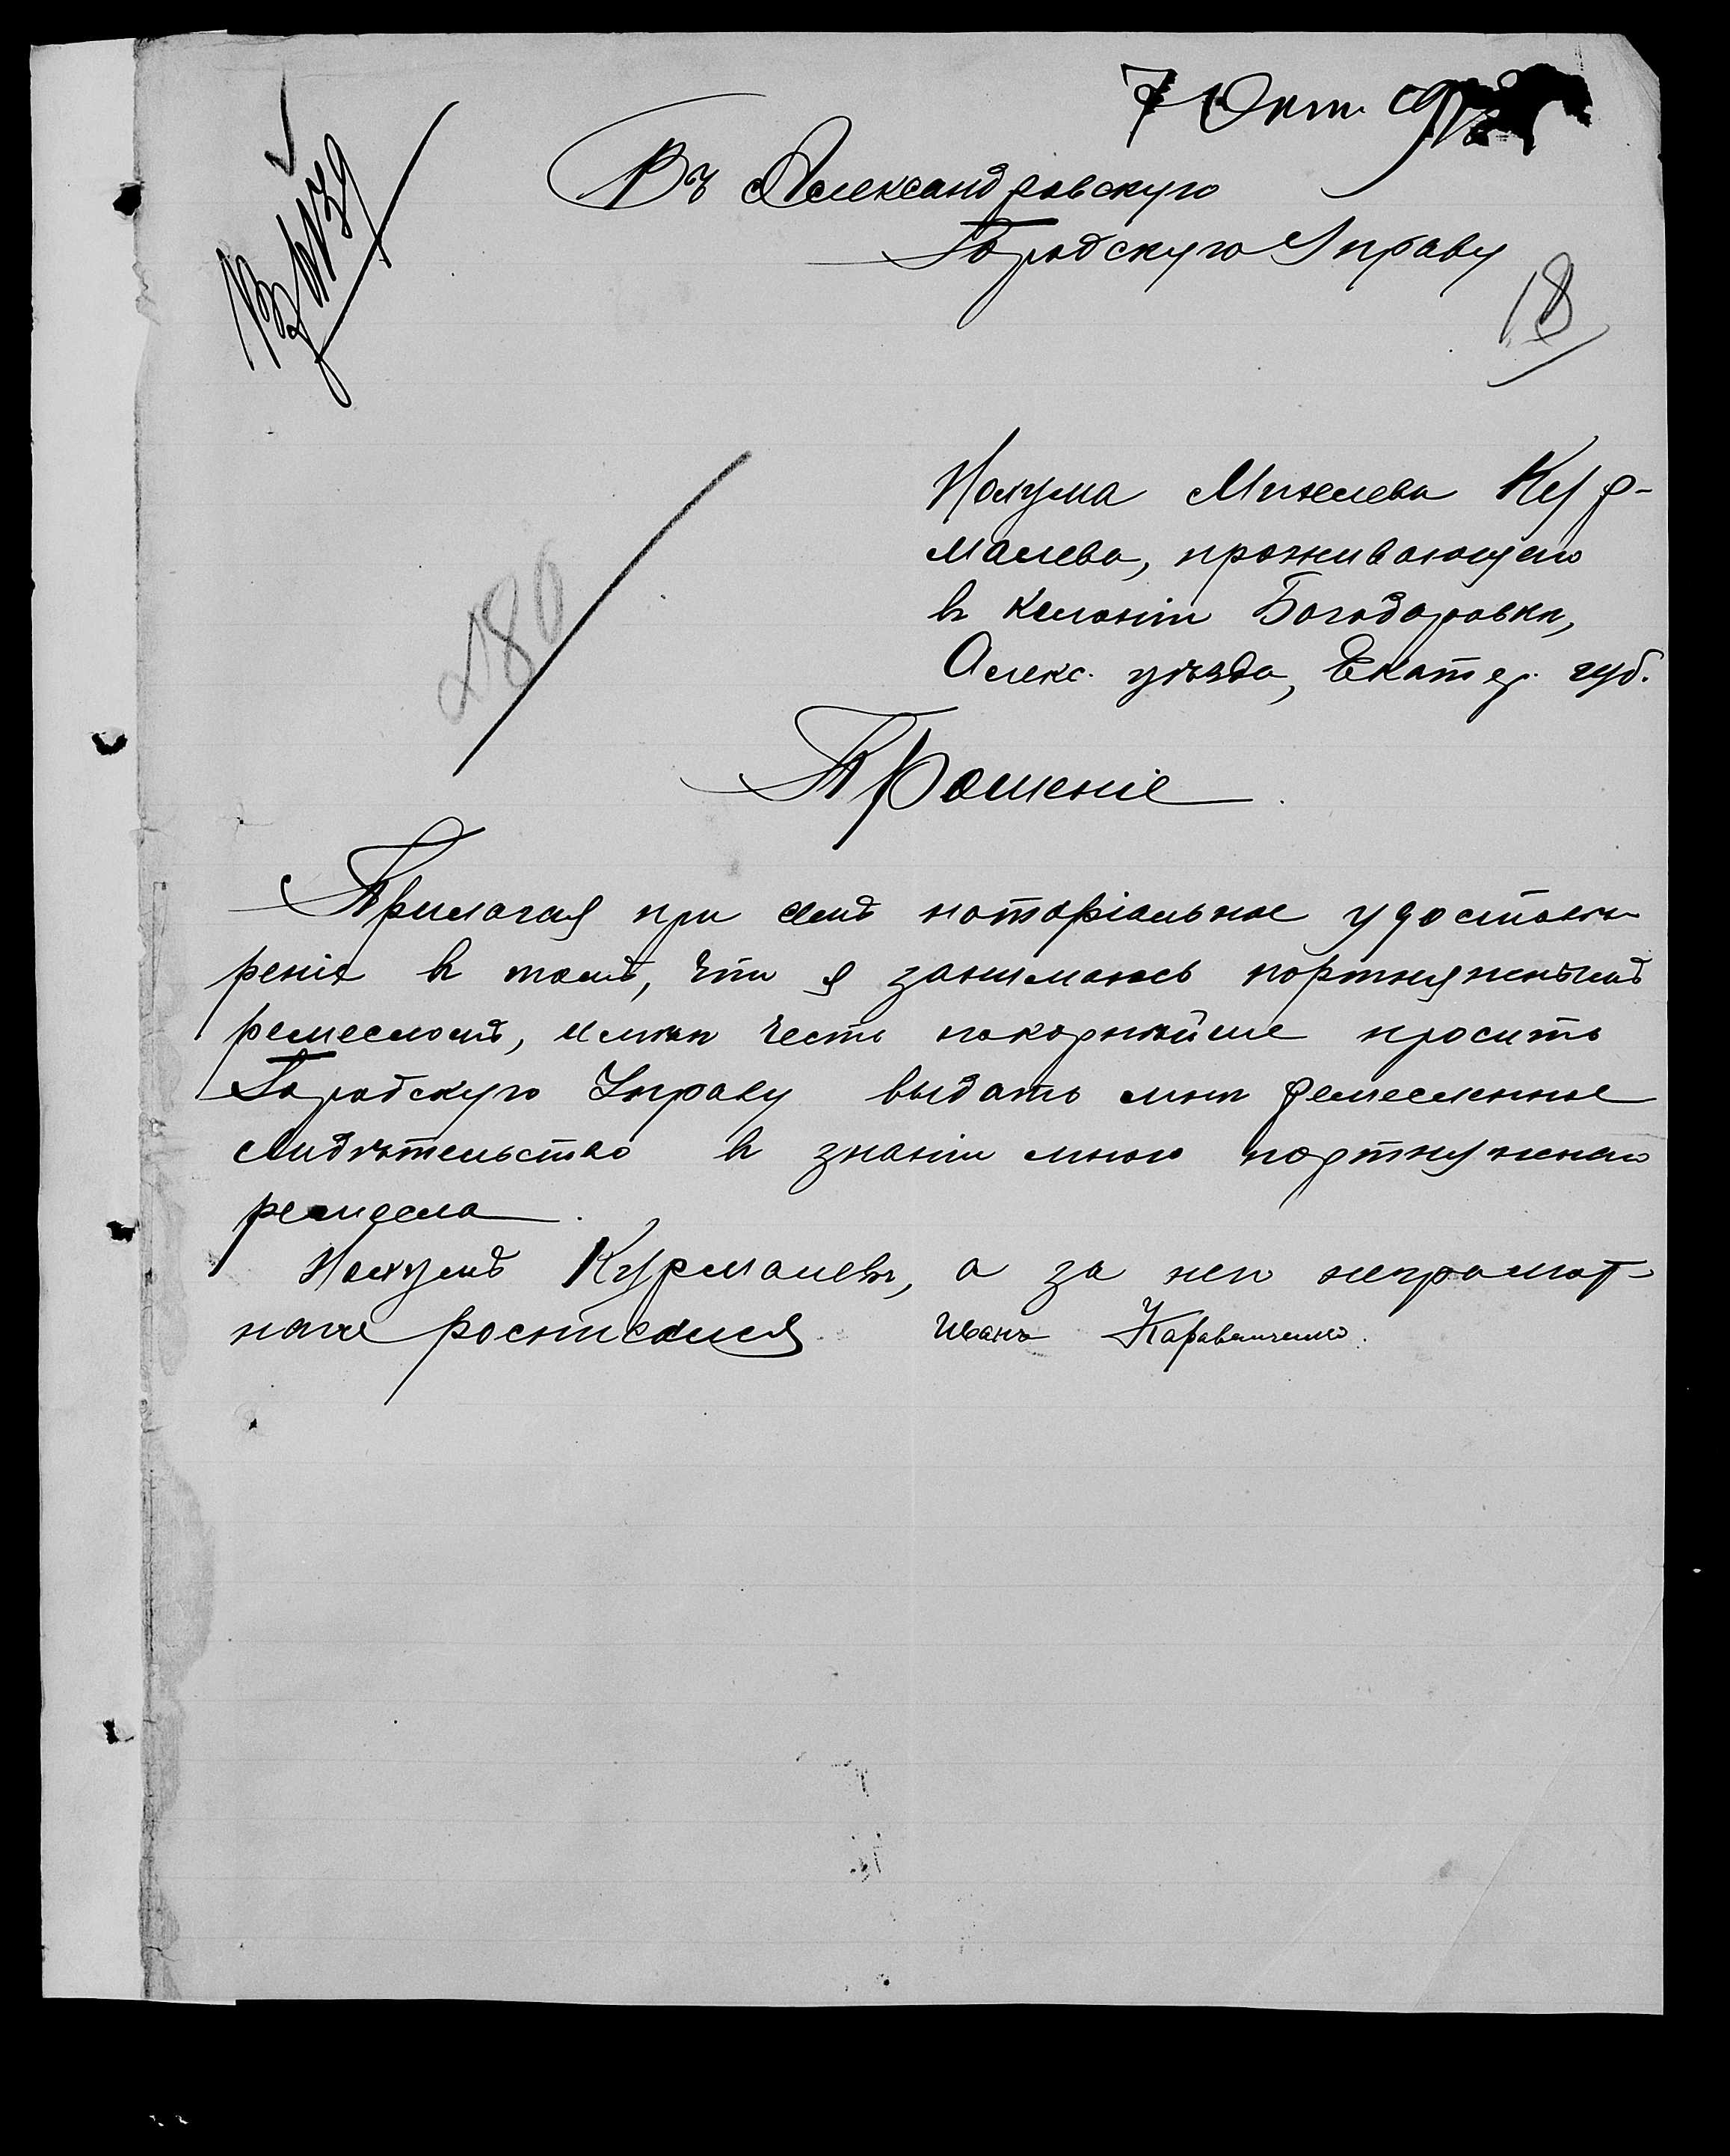 7 Окт.
Въ Александровскую
Городскую Управу
18
Нохума Михелева Кур-
малева, проживающаго
въ колоніи Богодаровки,
Алекс. уѣзда, Екатер. губ.
180
Прошеніе.
Прилагая при семъ нотаріальное удостовѣ-
реніе въ томъ, что я занимаюсь портняжнымъ
ремесломъ, имѣю честь покорнѣйше просить
Городскую Управу выдать мнѣ ремесленное
свидѣтельство въ знаніи мною портняжнаго
ремесла.
Нохумъ Курмалевъ, а за него неграмот-
наго росписался Иванъ